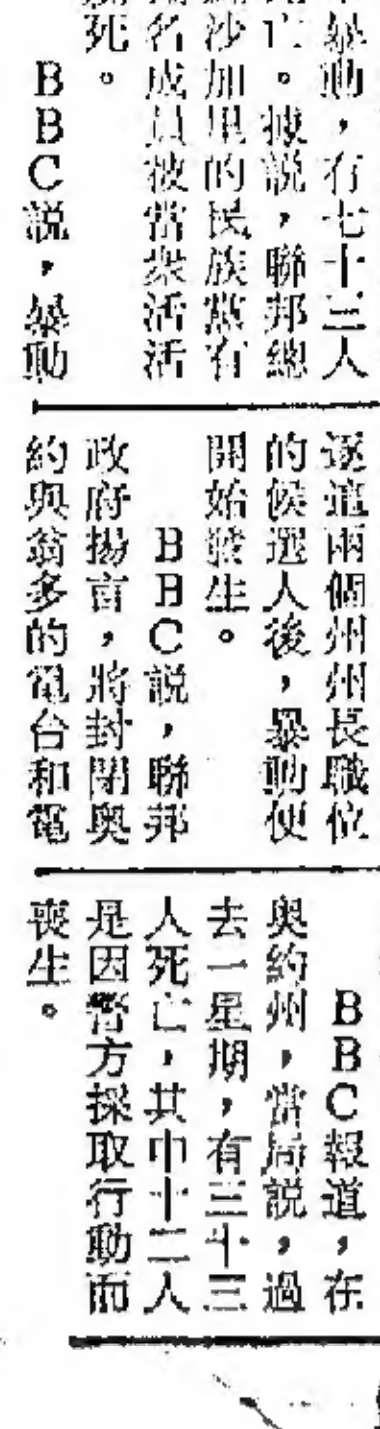 暴動，有七十三人
亡。據説，聯邦總
沙加里的民族黨有
名成員被當衆活活
死。
BBC説，暴動
逐這兩個州州長職位
的候選人後，暴動便
開始發生。
BBC説，聯邦
政府揚言，將封閉奧
約與翁多的電台和電
BBC報道，在
奧約州，當局説，過
去一星期，有三十三
人死亡，其中十二人
是因警方採取行動而
喪生。